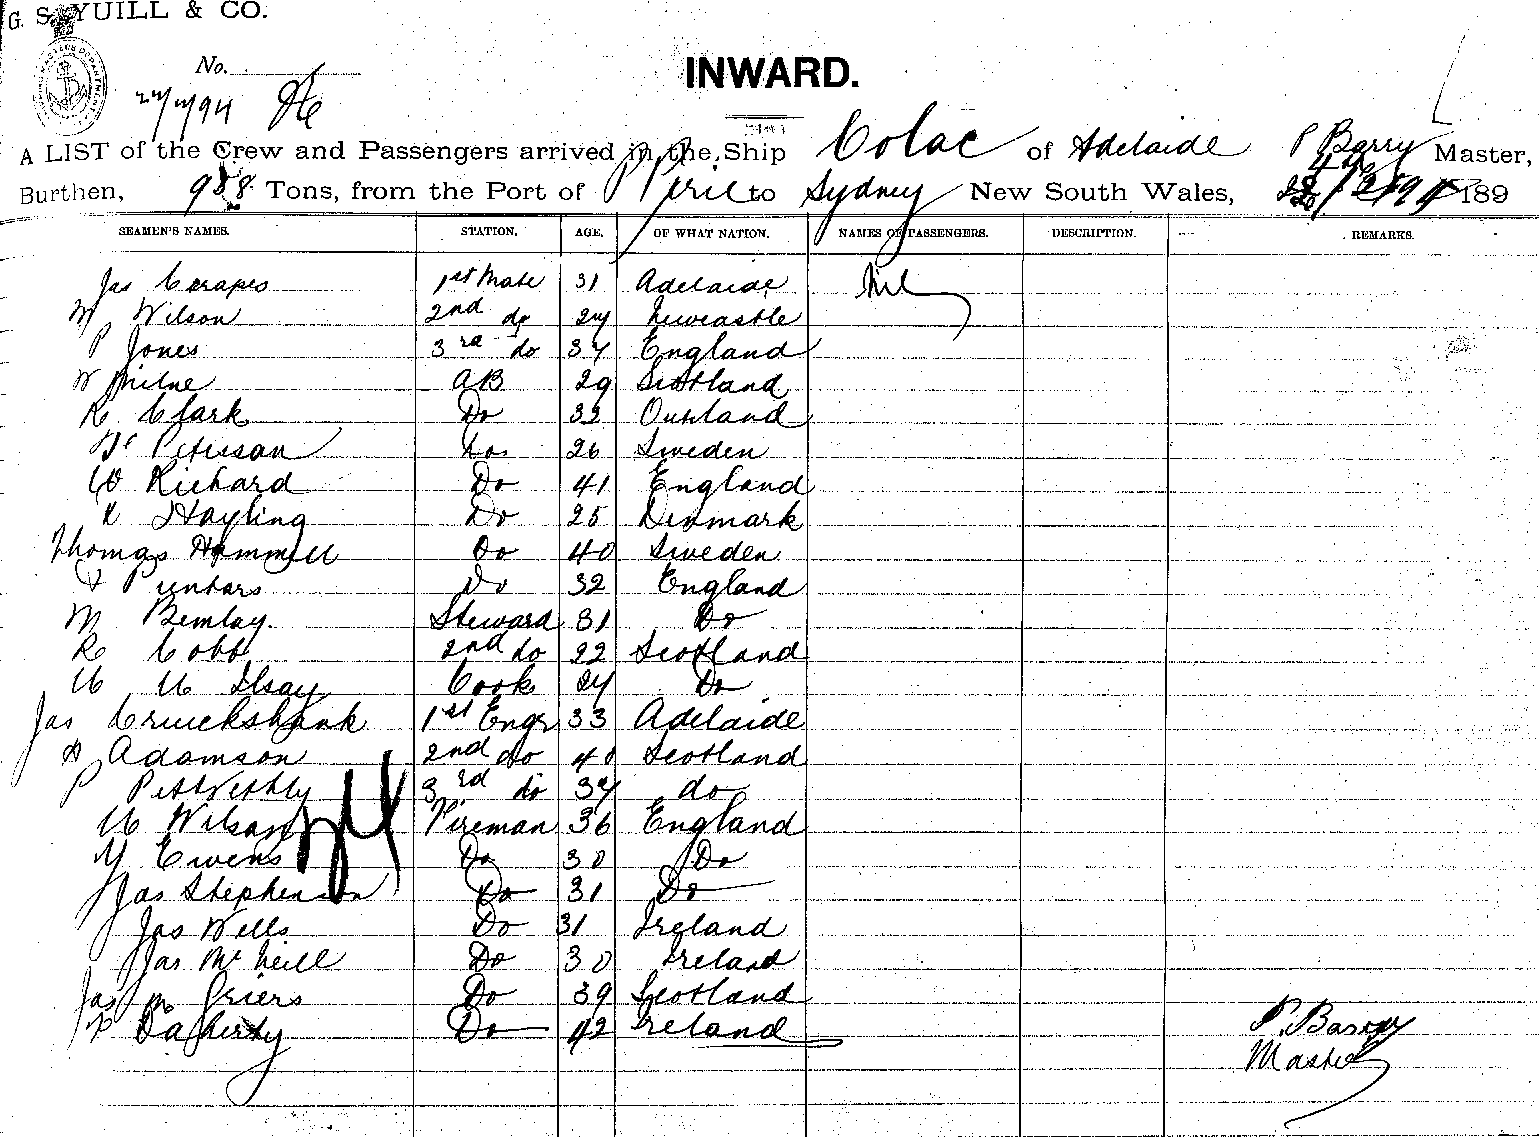 G. S. YUILL & CO.
No.
INWARD.
A LIST of the Crew and Passengers arrived in the Ship Colac of Adelaide P Barry Master,
Burthen, 988 Tons, from the Port of P Pirie to Sydney New South Wales, 189
SEAMEN'S NAMES. STATION. AGE. OF WHAT NATION. NAMES OF PASSENGERS. DESCRIPTION. REMARKS.
Jas Carapes 1st Mate 31 Adelaide Nil
M Wilson 2nd do 24 Newcastle
P Jones 3rd do 34 England
W Milne AB 29 Scotland
R Clark Do 32
Peterson Do 26 Sweden
W Richard Do 41 England
Hayling Do 25 Denmark
Thomas Hammill Do 40 Sweden
Do 32 England
M Bemlay. Steward 31 Do
R Cobb 2nd do 22 Scotland
Cook 24 Do
Jas Cruickshank 1st Engr 33 Adelaide
A Adamson 2nd do 40 Scotland
P 3rd do 34 do
W Wilson Fireman 36 England
Ewens Do 30 Do
Jas Stephenson Do 31 Do
Jas Wells Do 31 Ireland
Jas McNeill Do 30 Ireland
Jas Griers Do 39 Scotland
P Dafherty Do 42 Ireland
P. Barry
Master